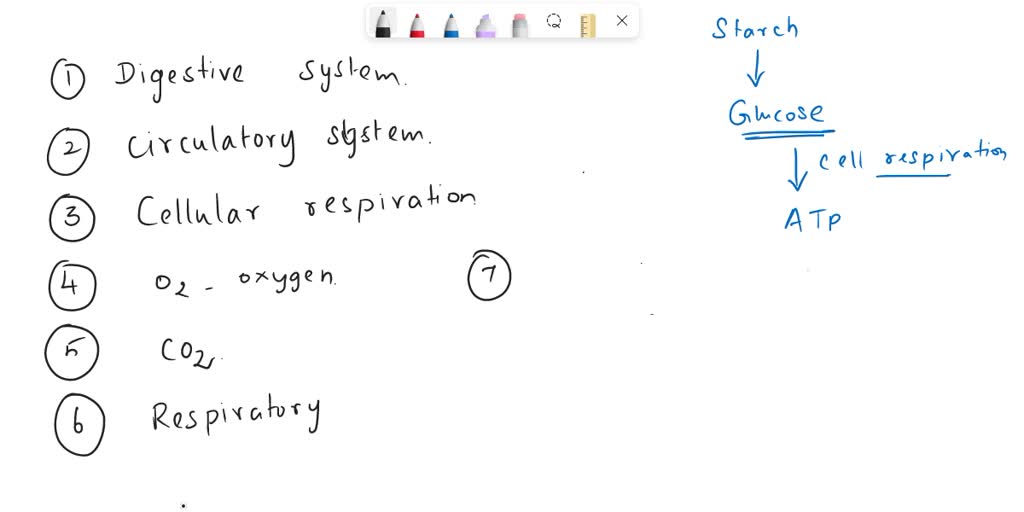 ① Digestive system.
② Circulatory system.
③ Cellular respiration
④ O2 - oxygen.
⑤ CO2.
⑥ Respiratory
⑦
Starch
↓
Glucose
↓ Cell respiration
ATP